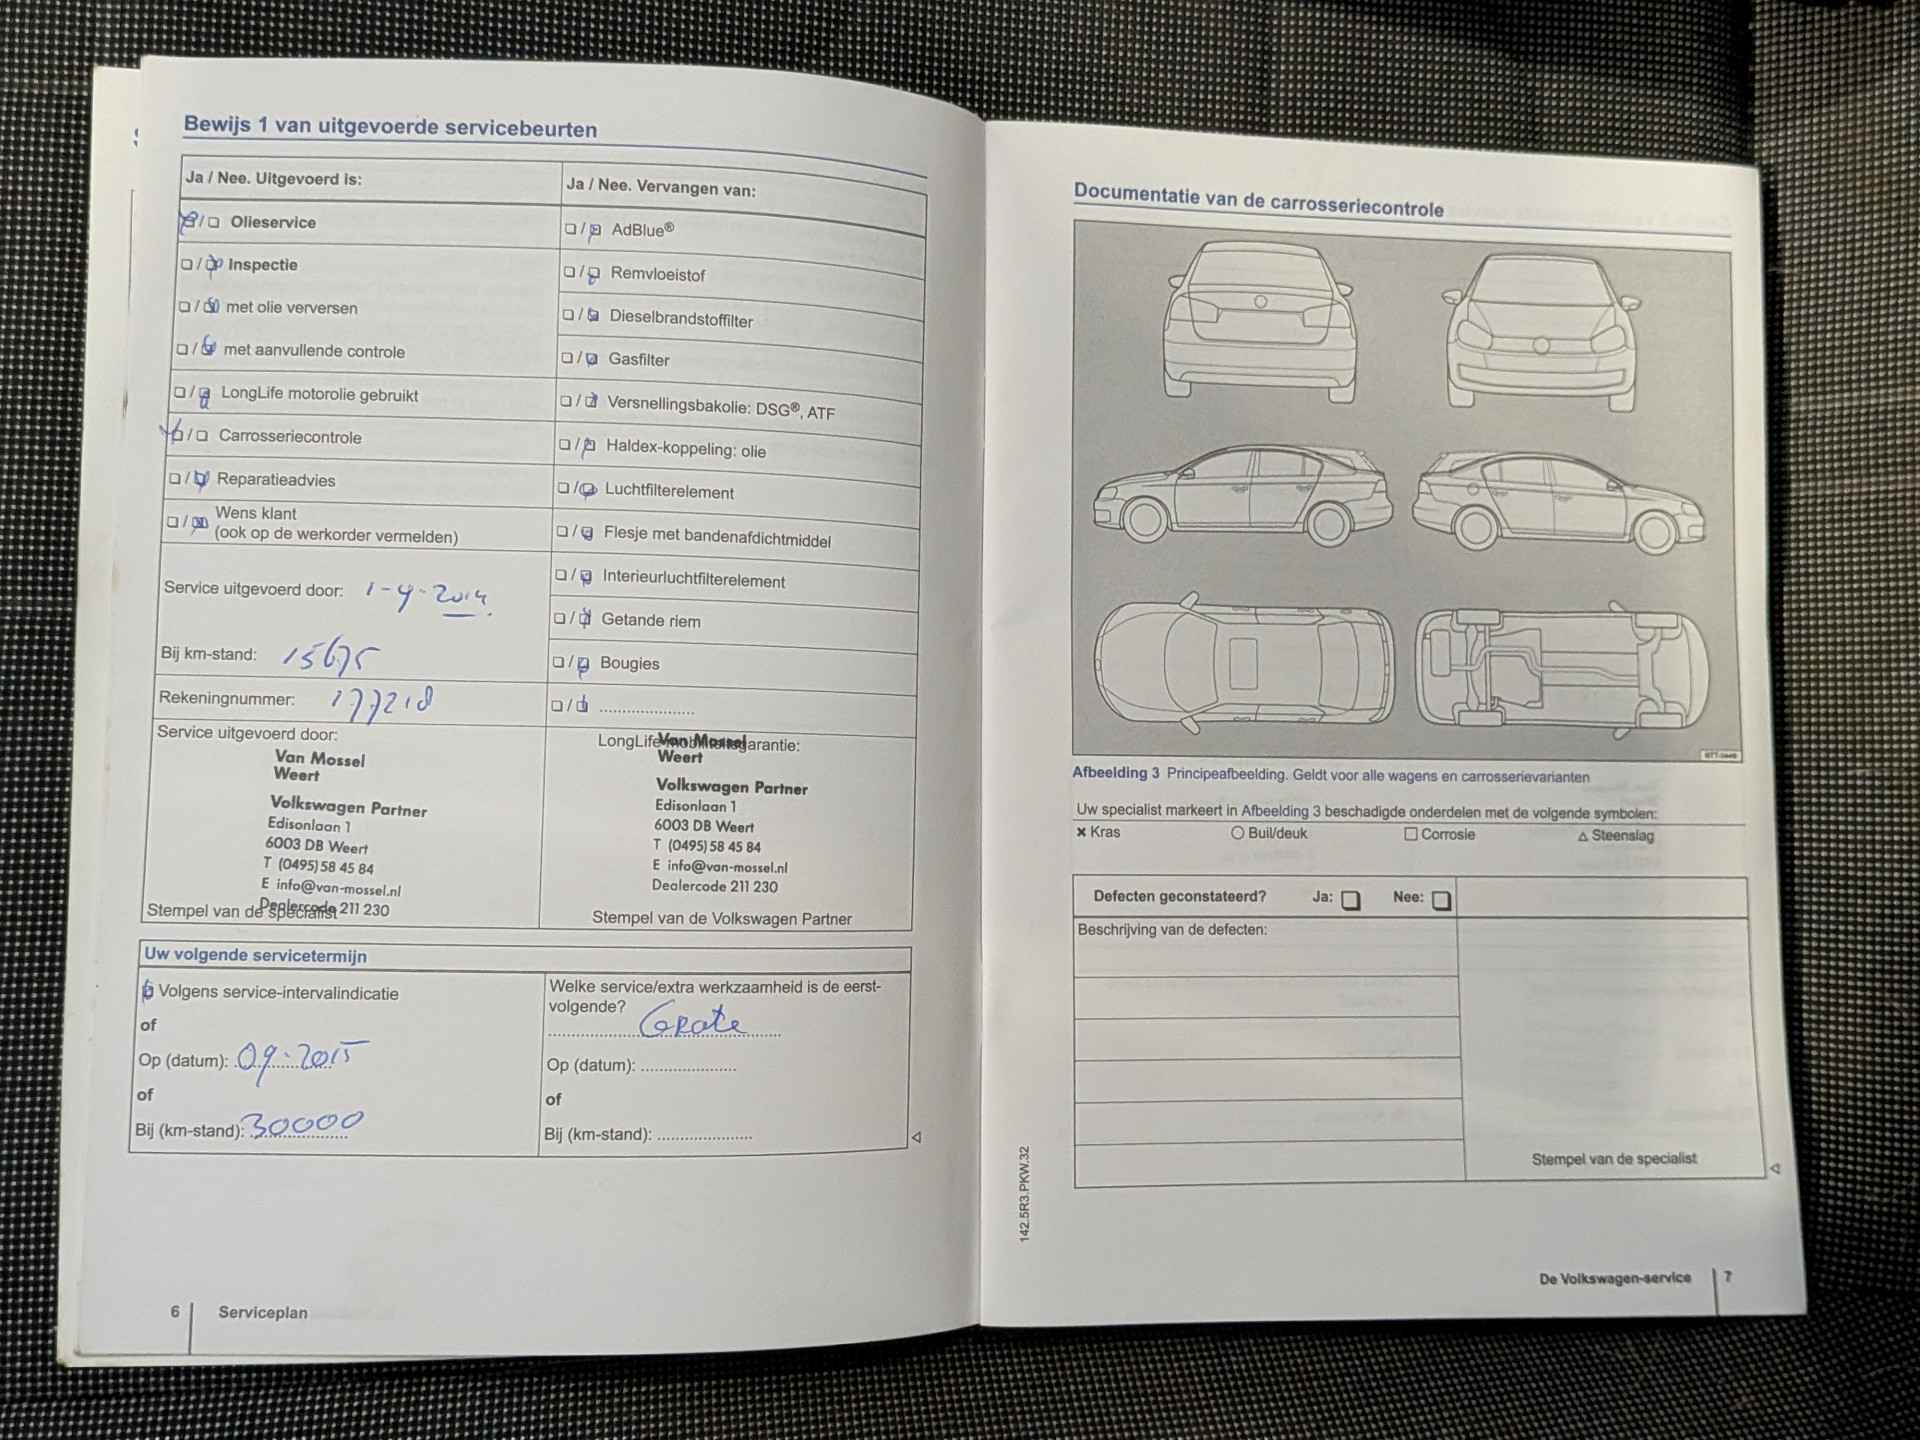 Bewijs 1 van uitgevoerde servicebeurten
Ja / Nee. Uitgevoerd is:
Olieservice
Inspectie
met olie verversen
met aanvullende controle
LongLife motorolie gebruikt
Carrosseriecontrole
Reparatieadvies
Wens klant
(ook op de werkorder vermelden)
Service uitgevoerd door: 1-9-2014
Bij km-stand: 15675
Rekeningnummer: 177218
Service uitgevoerd door:
Van Mossel
Weert
Volkswagen Partner
Edisonlaan 1
6003 DB Weert
T (0495) 58 45 84
E info@van-mossel.nl
Dealercode 211 230
Stempel van de specialist
Ja / Nee. Vervangen van:
AdBlue®
Remvloeistof
Dieselbrandstoffilter
Gasfilter
Versnellingsbakolie: DSG®, ATF
Haldex-koppeling: olie
Luchtfilterelement
Flesje met bandenafdichtmiddel
Interieurluchtfilterelement
Getande riem
Bougies
LongLife-mobiliteitsgarantie:
Van Mossel
Weert
Volkswagen Partner
Edisonlaan 1
6003 DB Weert
T (0495) 58 45 84
E info@van-mossel.nl
Dealercode 211 230
Stempel van de Volkswagen Partner
Uw volgende servicetermijn
Volgens service-intervalindicatie
of
Op (datum): 09-2015
of
Bij (km-stand): 30000
Welke service/extra werkzaamheid is de eerst-
volgende?
Grote
Op (datum):
of
Bij (km-stand):
6 Serviceplan
Documentatie van de carrosseriecontrole
Afbeelding 3 Principeafbeelding. Geldt voor alle wagens en carrosserievarianten
Uw specialist markeert in Afbeelding 3 beschadigde onderdelen met de volgende symbolen:
Kras Buil/deuk Corrosie Steenslag
Defecten geconstateerd? Ja: Nee:
Beschrijving van de defecten:
Stempel van de specialist
142.5R3.PKW.32
De Volkswagen-service 7